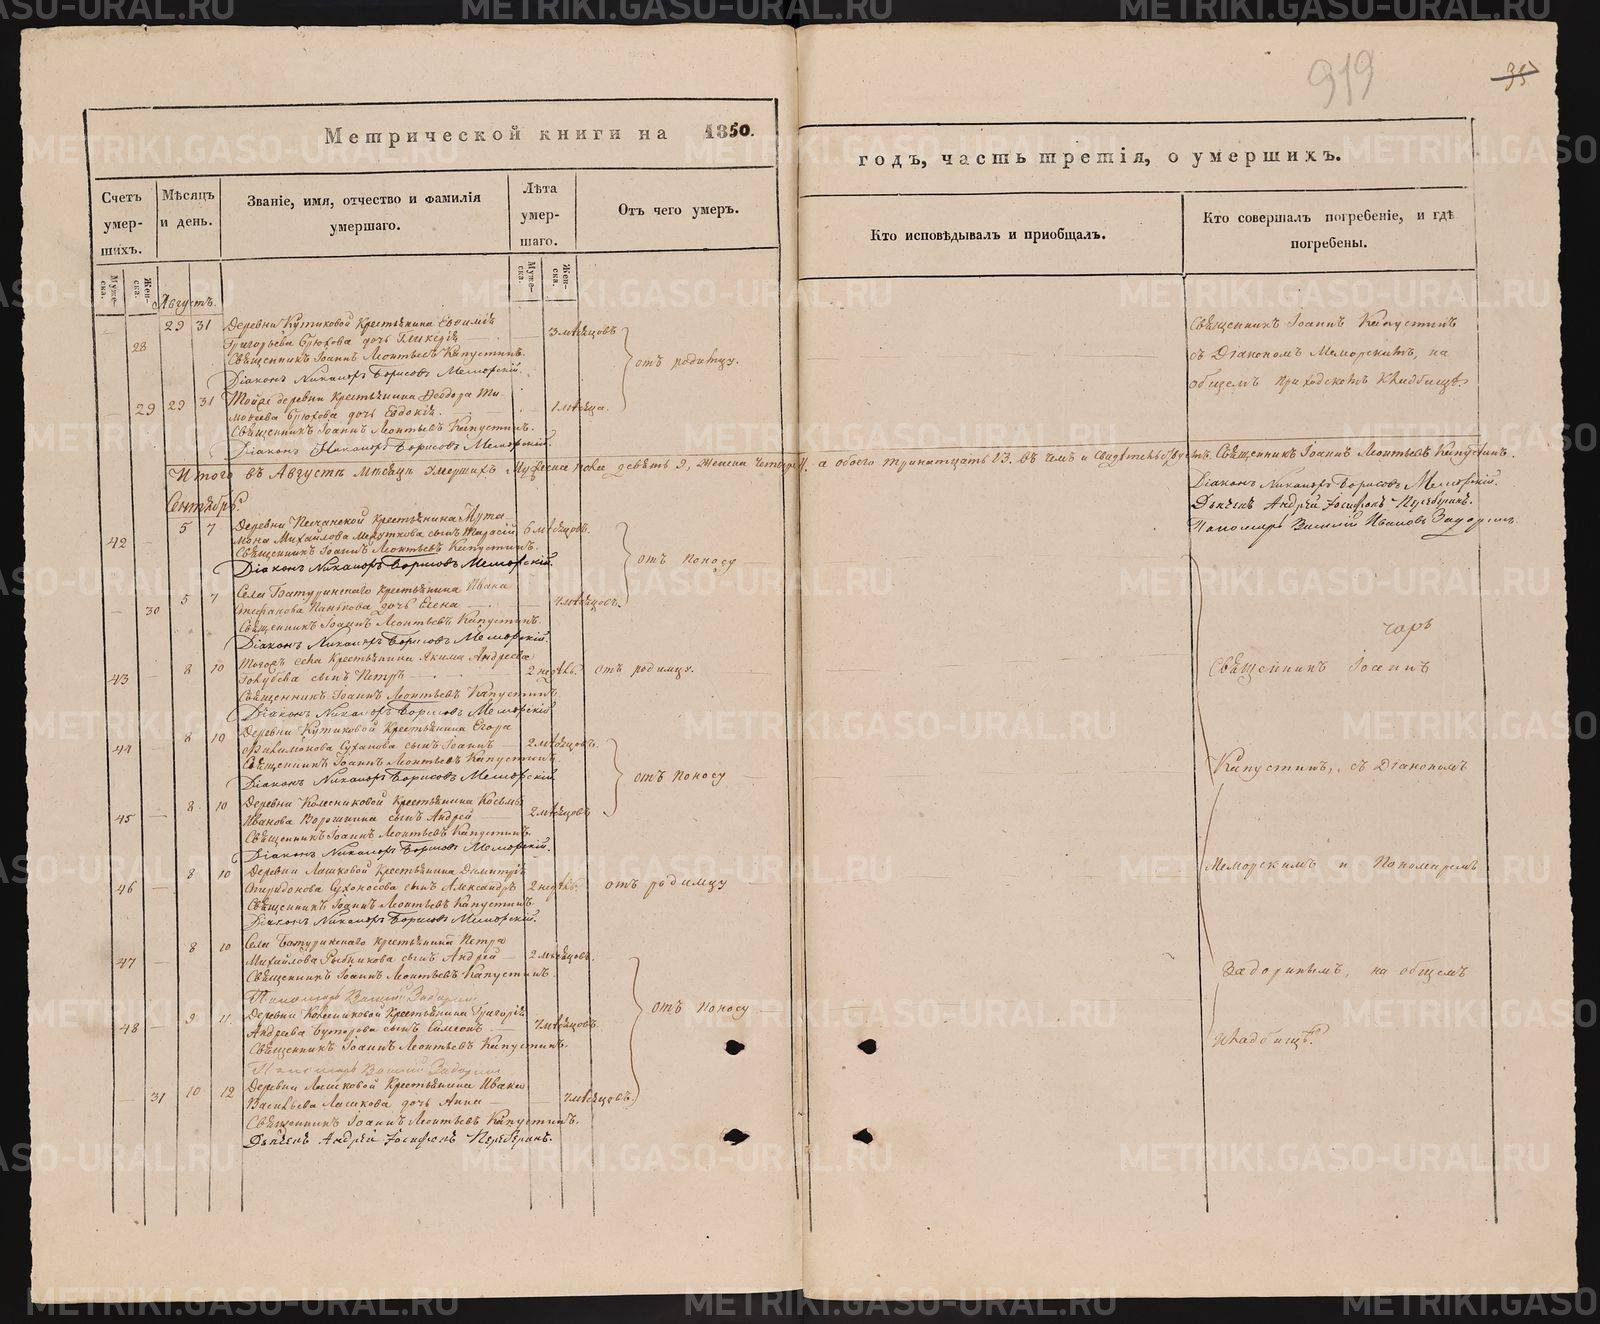 919
35
Метрической книги на 1850.
годъ, часть третія, о умершихъ.
Счетъ умер-шихъ.
Мѣсяцъ и день.
Званіе, имя, отчество и фамилія умершаго.
Лѣта умер-шаго.
Отъ чего умеръ.
Кто исповѣдывалъ и пріобщалъ.
Кто совершалъ погребеніе, и гдѣ погребены.
Муже-ска.
Жен-ска.
Муже-ска.
Жен-ска.
Августъ.
28 29 31 Деревни Кутиковой Крестьянина Евѳимія
Григорьева Брюхова дочь Гликерія 3 мѣсяцовъ
Священникъ Іоаннъ Леонтьевъ Капустинъ.
Діаконъ Никаноръ Борисовъ Меморскій.
отъ родимцу.
29 29 31 Тойже деревни Крестьянина Ѳеодора Ти-
моѳеева Брюхова дочь Евдокія 1 мѣсяца.
Священникъ Іоаннъ Леонтьевъ Капустинъ.
Діаконъ Никаноръ Борисовъ Меморскій.
Священникъ Іоаннъ Капустинъ
съ Діакономъ Меморскимъ, на
общемъ приходскомъ кладбищѣ.
Итого въ Августѣ мѣсяцѣ умершихъ Мужеска пола девять 9, Женска четыре 4. а обоего тринатцать 13. въ чемъ и свидѣтельствуемъ. Священникъ Іоаннъ Леонтьевъ Капустинъ.
Діаконъ Никаноръ Борисовъ Меморскій.
Дьячекъ Андрей Іосифовъ
Пономарь Василій Ивановъ Задоринъ.
Сентябрь.
42 5 7 Деревни Песчанской Крестьянина
Михайлова сынъ Тарасій 6 мѣсяцовъ.
Священникъ Іоаннъ Леонтьевъ Капустинъ.
Діаконъ Никаноръ Борисовъ Меморскій.
отъ поносу
30 5 7 Села Батуринскаго Крестьянина Ивана
Стефанова Панькова дочь Елена 4 мѣсяцовъ.
Священникъ Іоаннъ Леонтьевъ Капустинъ.
Діаконъ Никаноръ Борисовъ Меморскій.
43 8 10 Тогожъ села Крестьянина Акима Андреева
Голубева сынъ Петръ 2 недѣль. отъ родимцу.
Священникъ Іоаннъ Леонтьевъ Капустинъ.
Діаконъ Никаноръ Борисовъ Меморскій
44 8 10 Деревни Кутиковой Крестьянина Егора
Филимонова Суханова сынъ Іоаннъ 2 мѣсяцовъ.
Священникъ Іоаннъ Леонтьевъ Капустинъ.
Діаконъ Никаноръ Борисовъ Меморскій.
отъ поносу
45 8 10 Деревни Колесниковой Крестьянина Косьмы
Иванова Ворошнина сынъ Андрей 2 мѣсяцовъ
Священникъ Іоаннъ Леонтьевъ Капустинъ.
Діаконъ Никаноръ Борисовъ Меморскій.
46 8 10 Деревни Лашковой Крестьянина Димитрія
Спиридонова Сухоносова сынъ Александръ 2 недѣль. отъ родимцу
Священникъ Іоаннъ Леонтьевъ Капустинъ
Діаконъ Никаноръ Борисовъ Меморскій.
47 8 10 Села Батуринскаго крестьянина Петра
Михайлова Рыбникова сынъ Андрей 2 мѣсяцовъ.
Священникъ Іоаннъ Леонтьевъ Капустинъ
Пономарь Василій Задоринъ
48 9 11 Деревни Колесниковой Крестьянина Григорія
Андреева Буторова сынъ Симеонъ 7 мѣсяцовъ.
Священникъ Іоаннъ Леонтьевъ Капустинъ.
Пономарь Василій Задоринъ
отъ поносу
31 10 12 Деревни Лашковой Крестьянина Ивана
Васильева Лашкова дочь Анна 7 мѣсяцовъ.
Священникъ Іоаннъ Леонтьевъ Капустинъ.
Дьячекъ Андрей Іосифовъ
Священникъ Іоаннъ
Капустинъ, съ Діакономъ
Меморскимъ и Пономаремъ
Задоринымъ, на общемъ
кладбищѣ.
METRIKI.GASO-URAL.RU